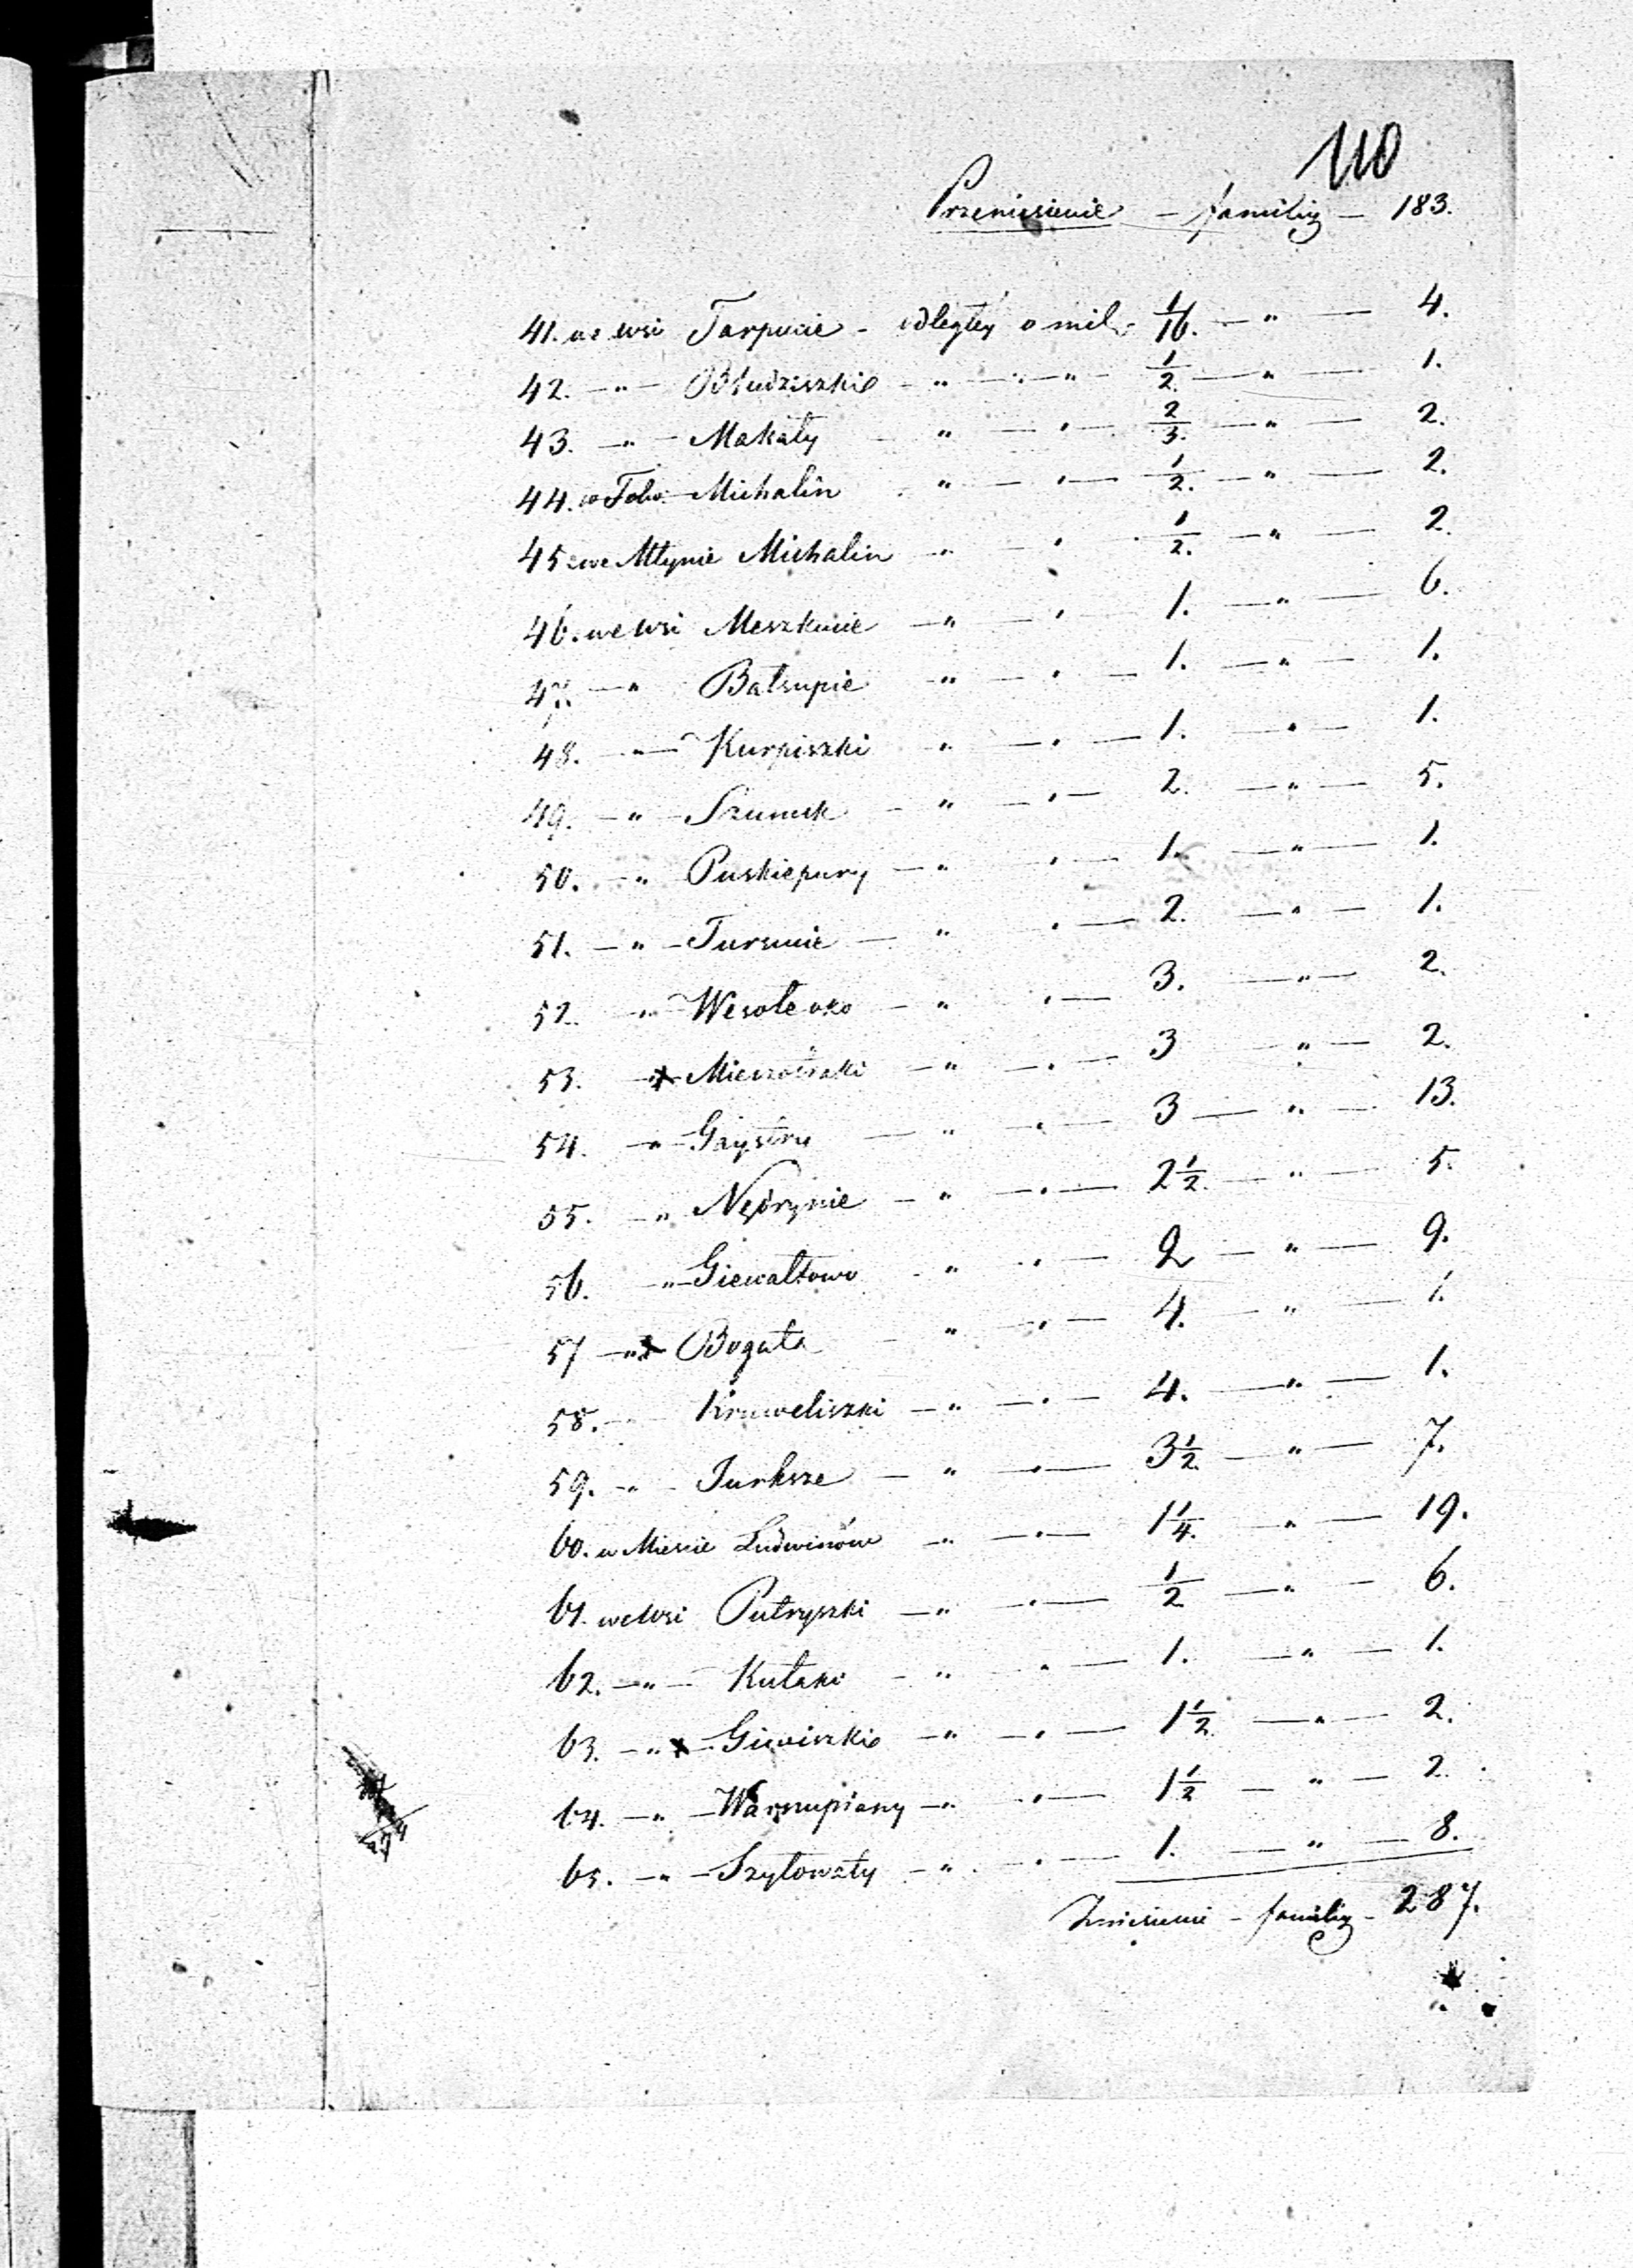 110
Przeniesienie – familiy – 183.
41. we wsi Tarpucie – odległéy o mil – 1/16. – " – 4.
42. – " – Błudziszkie – " – " – 1/2. – " – 1.
43. – " – Makały – " – " – 2/3. – " – 2.
44. w Folw. Michalin – " – " – 1/2. – " – 2.
45. we Młynie Michalin – " – " – 1/2. – " – 2.
46. we wsi Meszkucie – " – " – 1. – " – 6.
47. – " Balsupie – " – " – 1. – " – 1.
48. – " – Kurpiszki – " – " – 1. – " – 1.
49. – " – Szunisk – " – " – 2. – " – 5.
50. – " Puskiepury – " – " – 1. – " – 1.
51. – " – Tursucie – " – " – 2. – " – 1.
52. – " – Wesołe oko – " – " – 3. – " – 2.
53. – " – Mieczotraki – " – " – 3 – " – 2.
54. – " – Gaystry – " – " – 3 – " – 13.
55. – " Nędrynie – " – " – 2 1/2. – " – 5.
56. – " – Giewałtowo – " – " – 2 – " – 9.
57 – " – Bogata – " – " – 4. – " – 1.
58. – Kraweliszki – " – " – 4. – " – 1.
59. – " – Jurksze – " – " – 3 1/2. – " – 7.
60. w Miescie Ludwinów – " – " – 1 1/4. – " – 19.
61. we wsi Putryszki – " – " – 1/2 – " – 6.
62. – " – Kułaki – " – " – 1. – " – 1.
63. – " – Giwiszkie – " – " – 1 1/2. – " – 2.
64. – " – Warnupiany – " – " – 1 1/2 – " – 2.
65. – " – Szyłowzły – " – " – 1. – " – 8.
Zniesienie – familiy – 287.